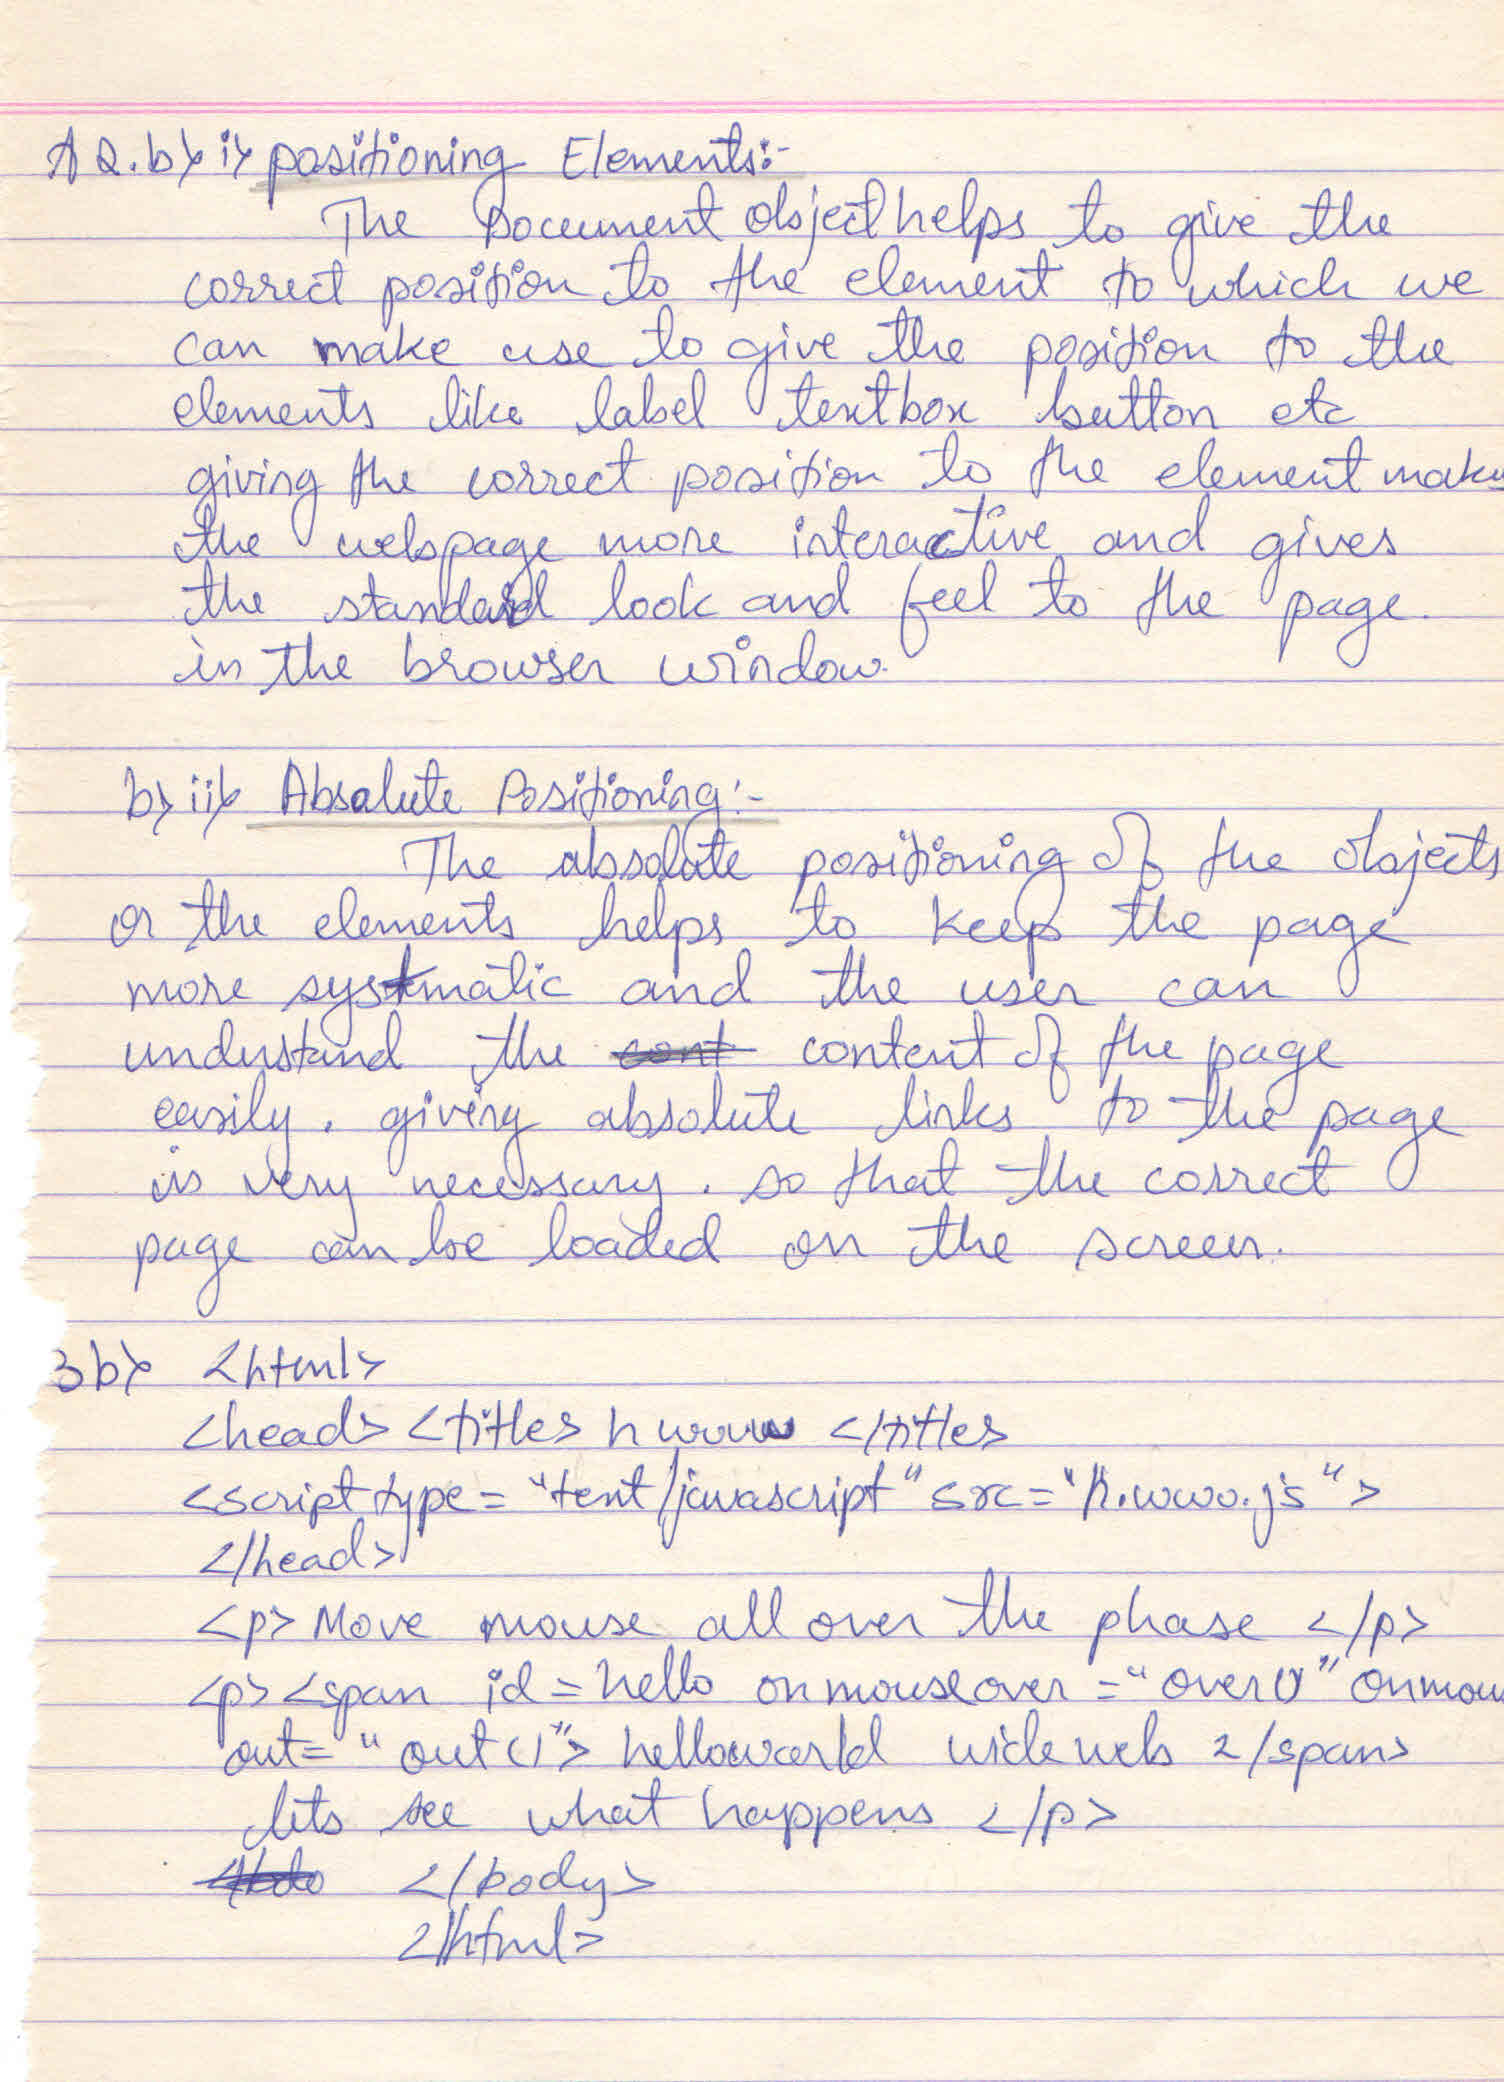 A2.b> i> positioning Elements:-
The Document object helps to give the
correct position to the element to which we
can make use to give the position to the
elements like label textbox button etc
giving the correct position to the element makes
the webpage more interactive and gives
the standard look and feel to the page.
in the browser window.
b> ii> Absolute Positioning:-
The absolute positioning of the objects
or the elements helps to keep the page
more systmatic and the user can
understand the cont content of the page
easily. giving absolute links to the page
is very necessary. so that the correct
page can be loaded on the screen.
3b> <html>
<head> <title> hwww </title>
<script type = "text/javascript" src = "h.www.js">
</head>
<p> Move mouse all over the phase </p>
<p> <span id = hello onmouseover = "over()" onmou
out = "out()"> helloworld wide web </span>
lets see what happens </p>
</body>
</html>